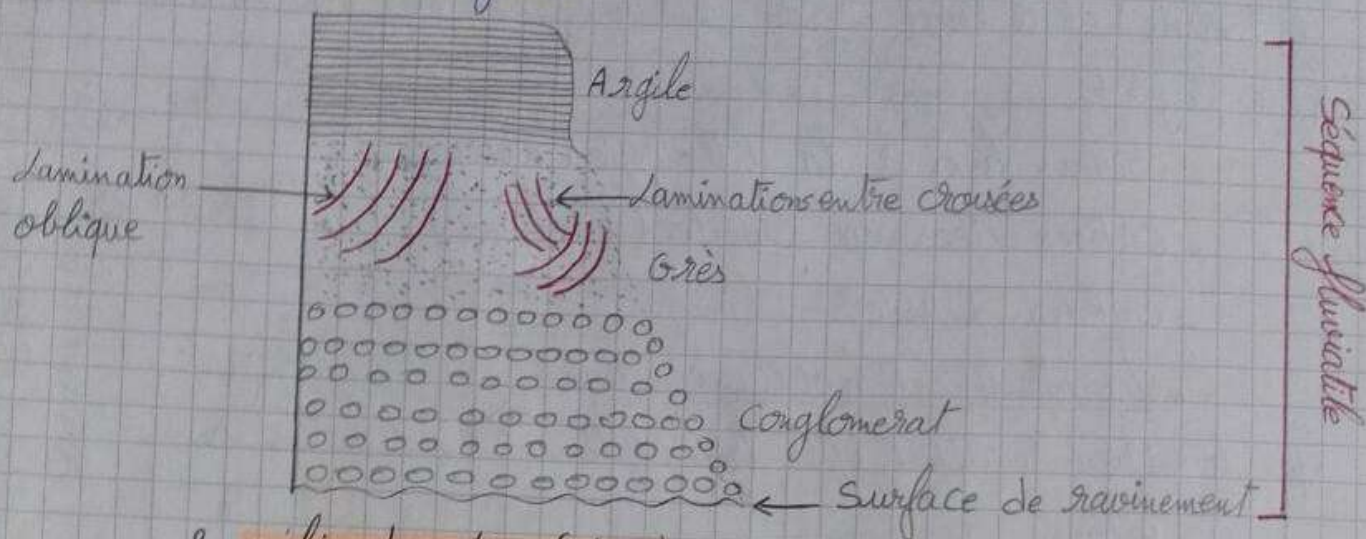 Argile
Lamination
oblique
Laminations entre croisées
Grès
Conglomerat
Surface de ravinement
Séquence fluviatile